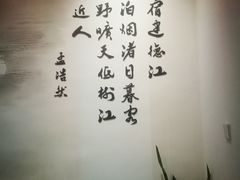 宿建德江
泊烟渚日暮客
野曠天低樹江
近人
孟浩然